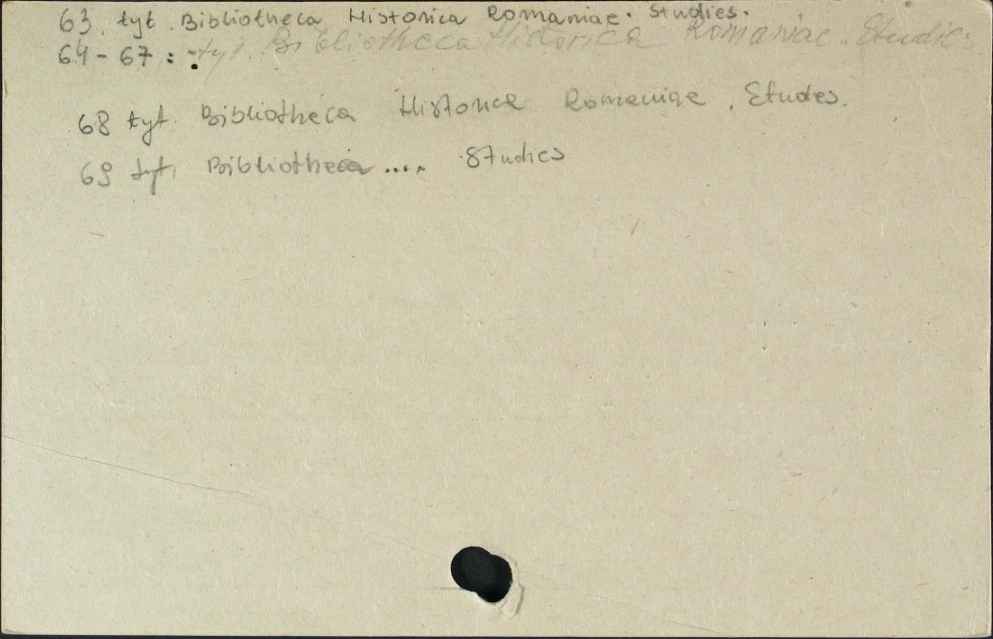 63. tyt. Bibliotheca Historica Romaniae. Studies.
64-67: tyt. Bibliotheca Historica Romaniae. Etudies
68 tyt. Bibliotheca Historica Romaniae. Etudes.
69 tyt. Bibliotheca .... Studies